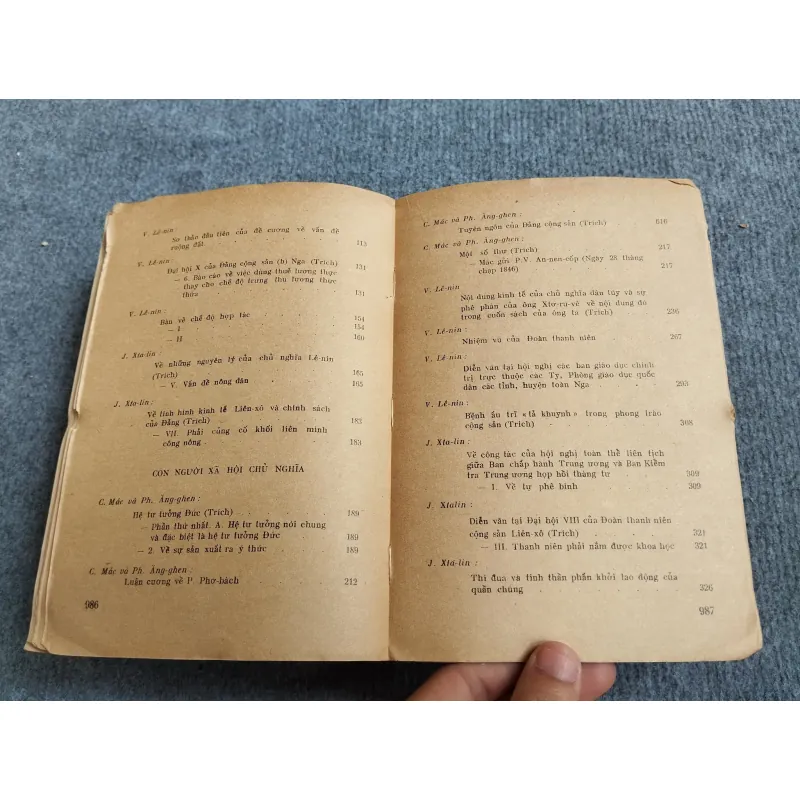 V. Lê-nin :
Sơ thảo đầu tiên của đề cương về vấn đề
ruộng đất . 113
V. Lê-nin :
Đại hội X của Đảng cộng sản (b) Nga (Trích) 131
— 6. Báo cáo về việc dùng thuế lương thực
thay cho chế độ trưng thu lương thực
thừa 131
V. Lê-nin :
Bàn về chế độ hợp tác 154
— I 154
— II 160
J. Xta-lin :
Về những nguyên lý của chủ nghĩa Lê-nin
(Trích) 165
— V. Vấn đề nông dân 165
J. Xta-lin :
Về tình hình kinh tế Liên-xô và chính sách
của Đảng (Trích) 183
— VII Phải củng cố khối liên minh
công nông 183
CON NGƯỜI XÃ HỘI CHỦ NGHĨA
C. Mác và Ph. Ăng-ghen :
Hệ tư tưởng Đức (Trích) 189
— Phần thứ nhất. A. Hệ tư tưởng nói chung
và đặc biệt là hệ tư tưởng Đức 189
— 2. Về sự sản xuất ra ý thức 189
C. Mác và Ph. Ăng-ghen :
Luận cương về P. Phơ-bách 212
986
C. Mác và Ph. Ăng-ghen :
Tuyên ngôn của Đảng cộng sản (Trích) 216
C. Mác và Ph. Ăng-ghen :
Một số thư (Trích) 217
— Mác gửi P.V. An-nen-cốp (Ngày 28 tháng
chạp 1846) 217
V. Lê-nin :
Nội dung kinh tế của chủ nghĩa dân túy và sự
phê phán của ông Xtơ-ru-vê về nội dung đó
trong cuốn sách của ông ta (Trích) 236
V. Lê-nin :
Nhiệm vụ của Đoàn thanh niên 267
V. Lê-nin :
Diễn văn tại hội nghị các ban giáo dục chính
trị trực thuộc các Ty, Phòng giáo dục quốc
dân các tỉnh, huyện toàn Nga 293
V. Lê-nin :
Bệnh ấu trĩ «tả khuynh» trong phong trào
cộng sản (Trích) 308
J. Xta-lin :
Về công tác của hội nghị toàn thể liên tịch
giữa Ban chấp hành Trung ương và Ban Kiểm
tra Trung ương họp hồi tháng tư 309
— I. Về tự phê bình 309
J. Xtalin :
Diễn văn tại Đại hội VIII của Đoàn thanh niên
cộng sản Liên-xô (Trích) 321
— III. Thanh niên phải nắm được khoa học 321
J. Xta-lin :
Thi đua và tinh thần phấn khởi lao động của
quần chúng 326
987